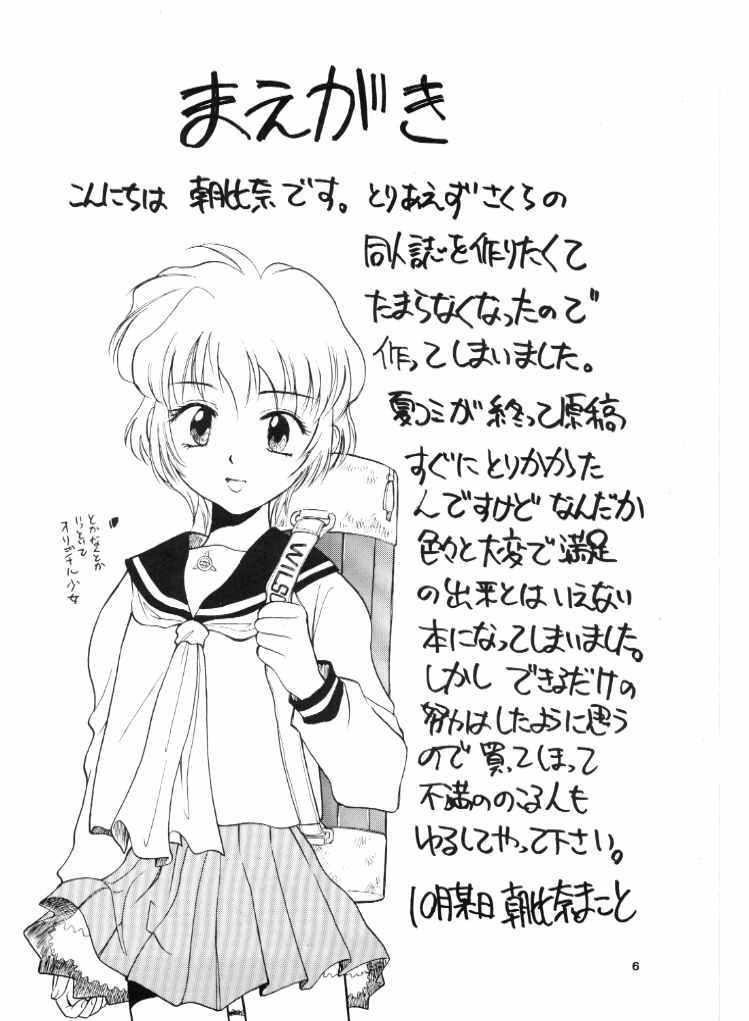 まえがき
こんにちは 朝比奈です。とりあえずさくらの
同人誌を作りたくて
たまらなくなったので
作ってしまいました。
夏コミが終って原稿
すぐにとりかかった
んですけど なんだか
色々と大変で満足
の出来とはいえない
本になってしまいました。
しかし できるだけの
努力はしたように思う
ので 買ってしまって
不満ののこる人も
ゆるしてやって下さい。
10月某日 朝比奈まこと
とかなんとか
いっといて
オリジナル少女
WILS
6